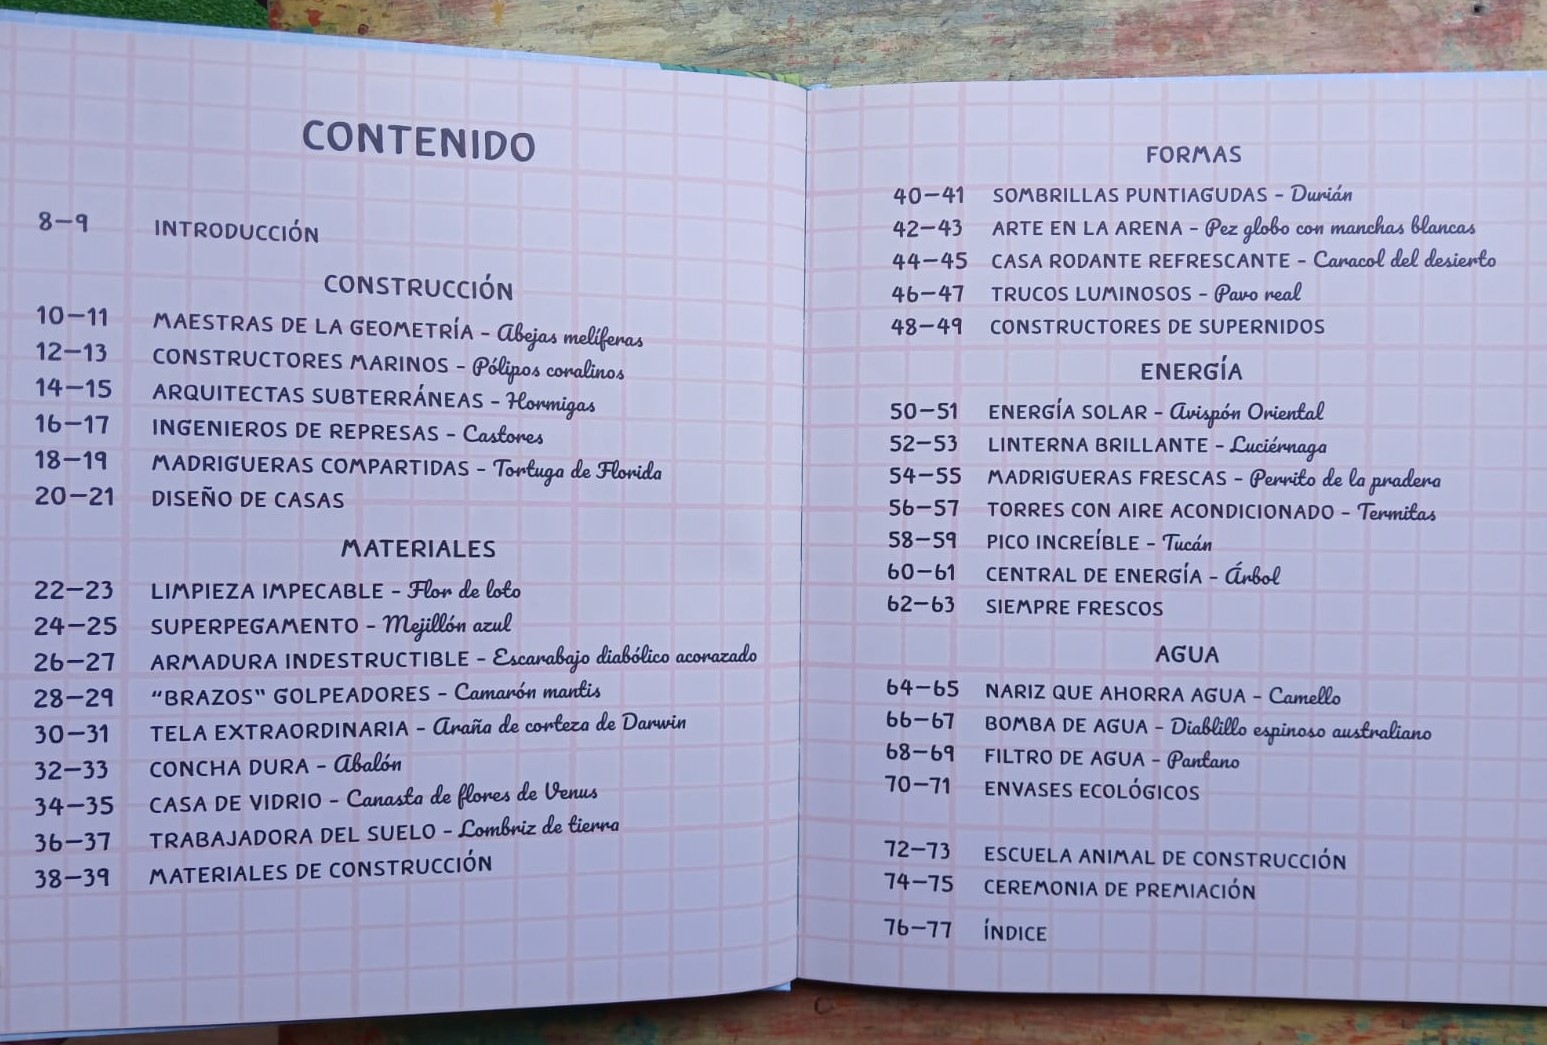 CONTENIDO
8–9 INTRODUCCIÓN
CONSTRUCCIÓN
10–11 MAESTRAS DE LA GEOMETRÍA – Abejas melíferas
12–13 CONSTRUCTORES MARINOS – Pólipos coralinos
14–15 ARQUITECTAS SUBTERRÁNEAS – Hormigas
16–17 INGENIEROS DE REPRESAS – Castores
18–19 MADRIGUERAS COMPARTIDAS – Tortuga de Florida
20–21 DISEÑO DE CASAS
MATERIALES
22–23 LIMPIEZA IMPECABLE – Flor de loto
24–25 SUPERPEGAMENTO – Mejillón azul
26–27 ARMADURA INDESTRUCTIBLE – Escarabajo diabólico acorazado
28–29 "BRAZOS" GOLPEADORES – Camarón mantis
30–31 TELA EXTRAORDINARIA – Araña de corteza de Darwin
32–33 CONCHA DURA – Abalón
34–35 CASA DE VIDRIO – Canasta de flores de Venus
36–37 TRABAJADORA DEL SUELO – Lombriz de tierra
38–39 MATERIALES DE CONSTRUCCIÓN
FORMAS
40–41 SOMBRILLAS PUNTIAGUDAS – Durián
42–43 ARTE EN LA ARENA – Pez globo con manchas blancas
44–45 CASA RODANTE REFRESCANTE – Caracol del desierto
46–47 TRUCOS LUMINOSOS – Pavo real
48–49 CONSTRUCTORES DE SUPERNIDOS
ENERGÍA
50–51 ENERGÍA SOLAR – Avispón Oriental
52–53 LINTERNA BRILLANTE – Luciérnaga
54–55 MADRIGUERAS FRESCAS – Perrito de la pradera
56–57 TORRES CON AIRE ACONDICIONADO – Termitas
58–59 PICO INCREÍBLE – Tucán
60–61 CENTRAL DE ENERGÍA – Árbol
62–63 SIEMPRE FRESCOS
AGUA
64–65 NARIZ QUE AHORRA AGUA – Camello
66–67 BOMBA DE AGUA – Diablillo espinoso australiano
68–69 FILTRO DE AGUA – Pantano
70–71 ENVASES ECOLÓGICOS
72–73 ESCUELA ANIMAL DE CONSTRUCCIÓN
74–75 CEREMONIA DE PREMIACIÓN
76–77 ÍNDICE